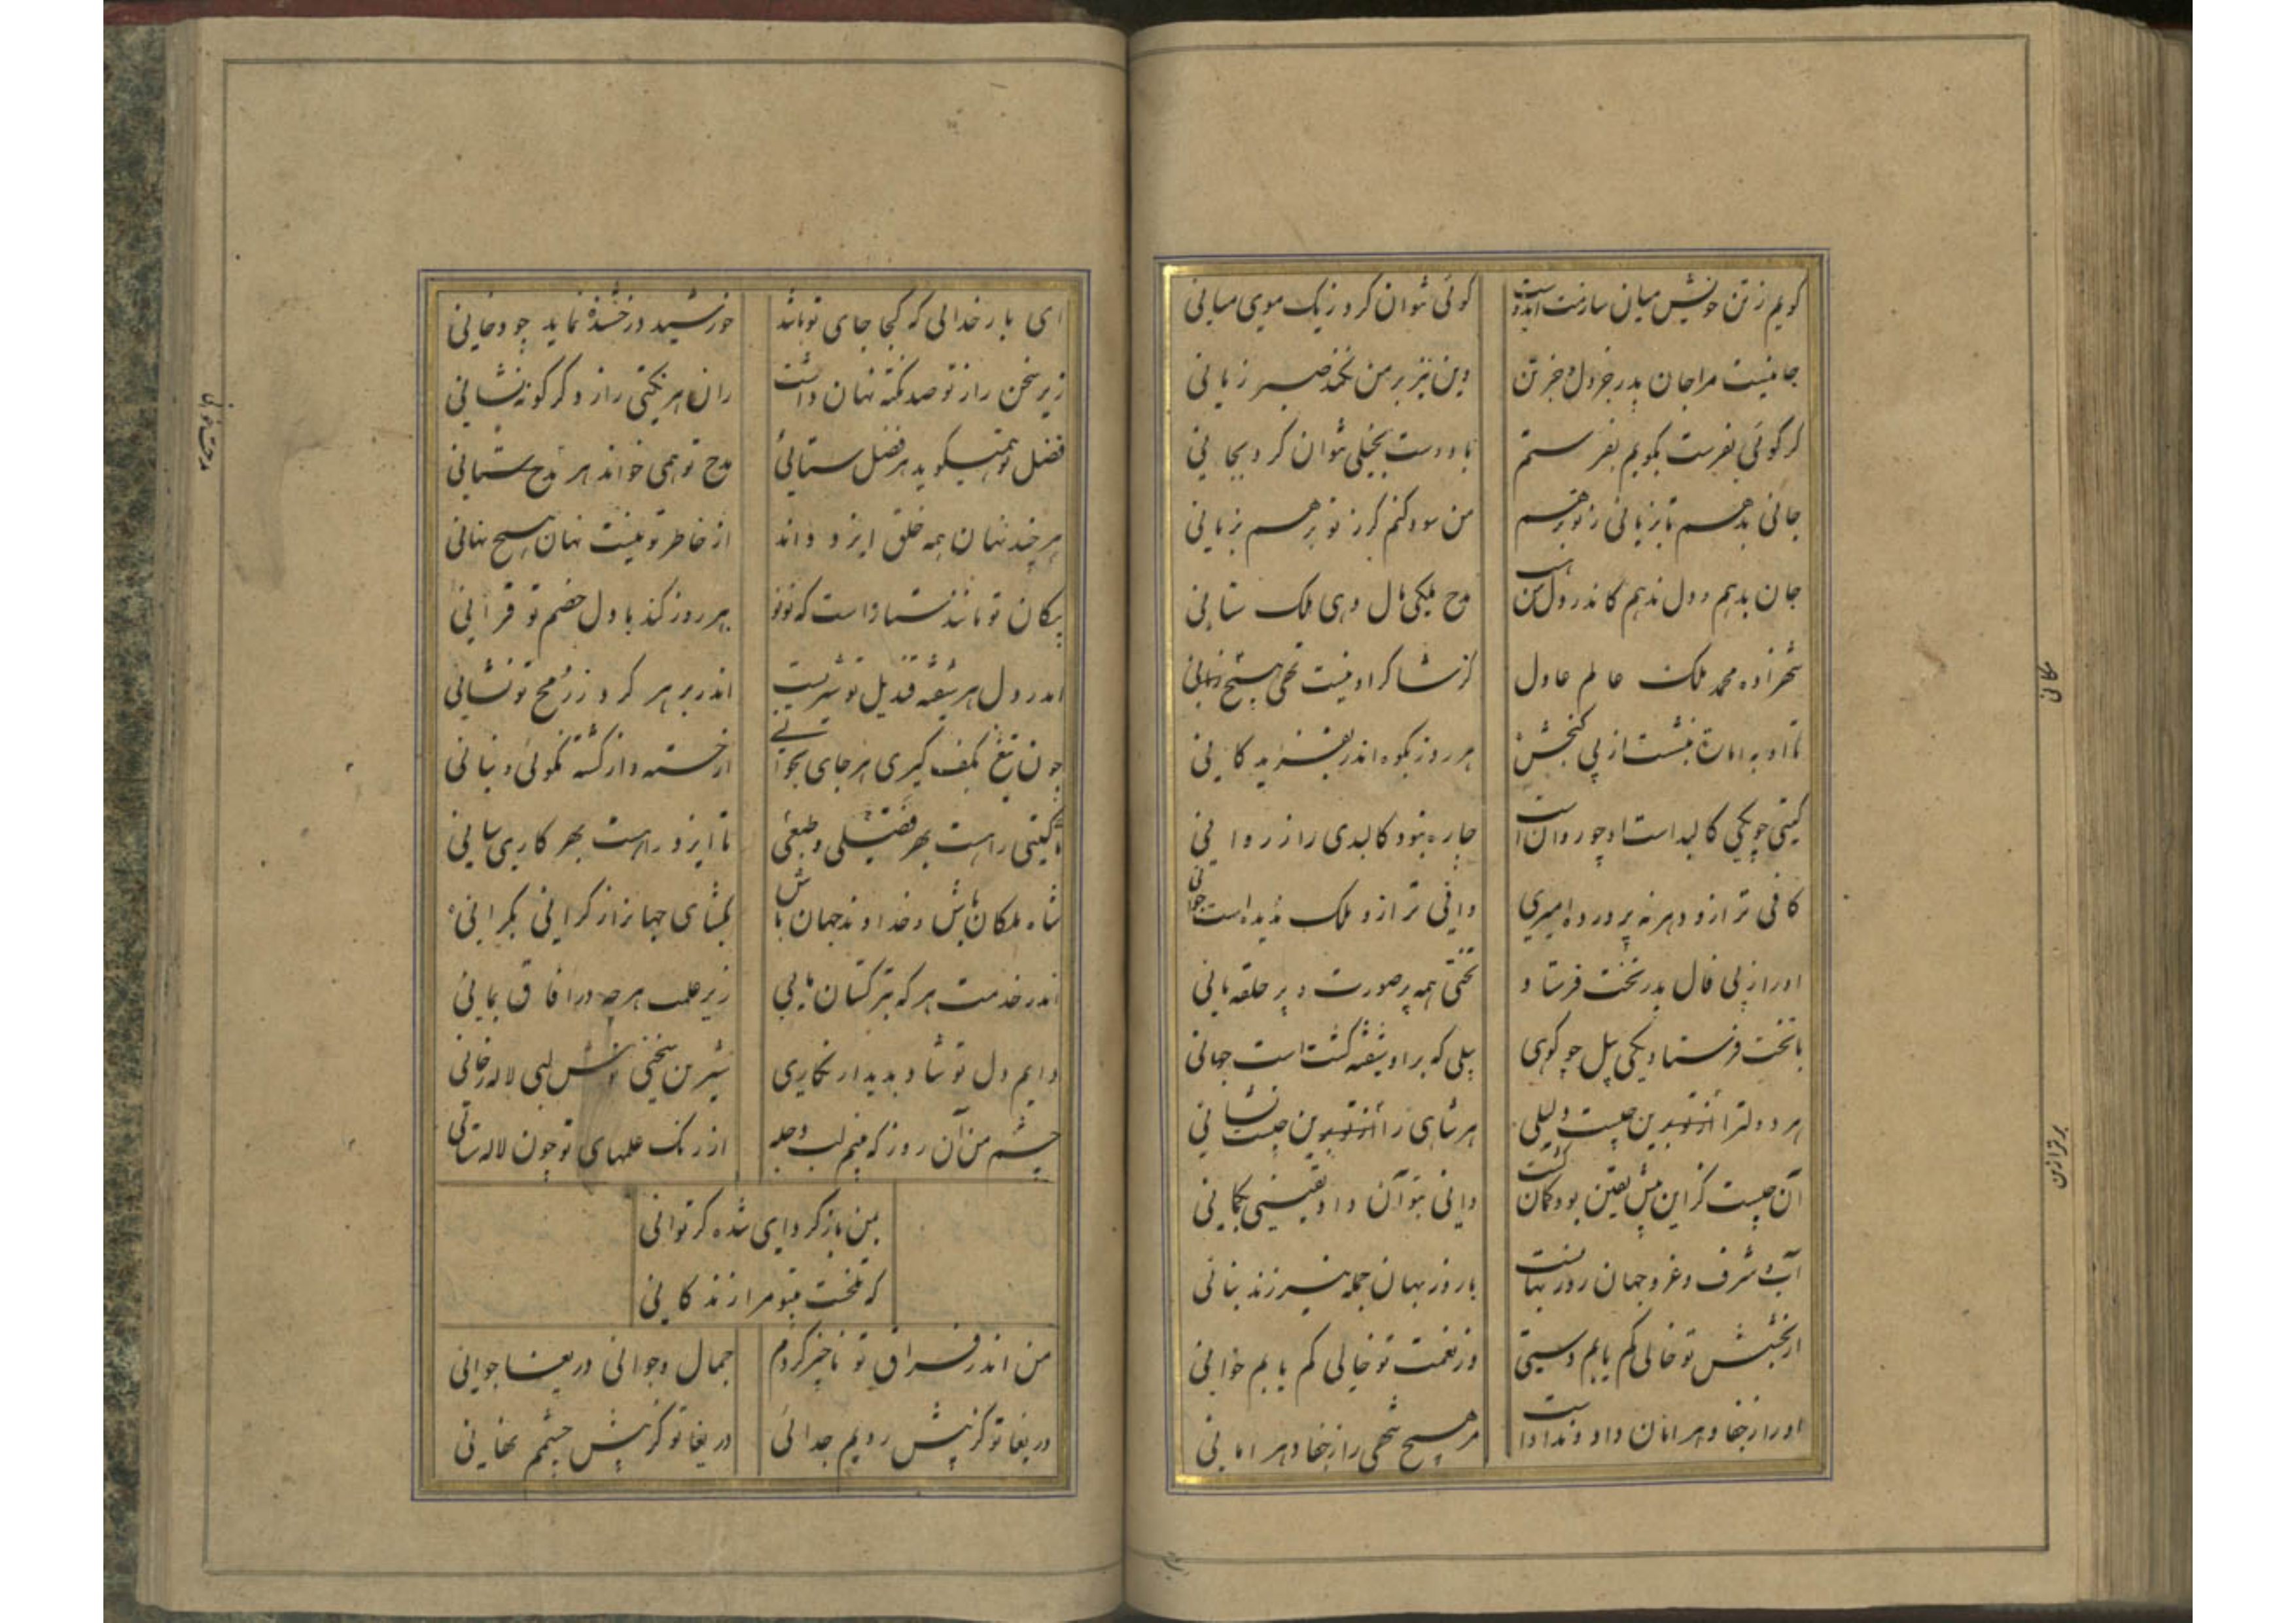 گویم ز تن خویش میان سازمت ای دوست گوئی نتوان کرد ز یک موی میانی
جانیست مرا جان پدر جز دل و جز تن وین نیز بر من نکند صبر زیانی
گر گوئی بفرست بگویم بفرستم با دوست بخیلی نتوان کرد بجانی
جانی بدهم تا بزیانی ز تو برهم من سود کنم گر ز تو برهم بزیانی
جان بدهم و دل ندهم کاندر دل من است مدح ملکی مال دهی ملک ستانی
شهزاده محمد ملک عالم عادل کز شاکر او نیست تهی هیچ زبانی
تا او به امارت بنشست از پی گنجش هر روز بکوه اندر بفزاید کانی
گیتی چو یکی کالبد است او چو روان است چاره نبود کالبدی را ز روانی
کافی تر ازو دهر نپرورده امیری وافی تر ازو ملک ندیده است جوانی
او را ز پی فال پدر تخت فرستاد تختی همه پر صورت و پر حلقه مانی
با تخت فرستاد یکی پیل چو کوهی پیلی که بر او شیفته گشته است جهانی
هر دولت را افزون تر ازین چیست دلیلی هر شاهی را افزون تر ازین چیست نشانی
آن چیست کزین پیش یقین بود و گمان گشت دانی نتوان داد یقینی بگمانی
آب و شرف و عز و جهان روز بهان است با روز بهان جمله نیرزند بنانی
از بخشش تو خالی کم یابم دستی وز نعمت تو خالی کم یابم خوانی
او را ز جفا دهر امان داد و نداده است مر هیچ شهی را ز جفا دهر امانی
بر تر ازین
ای بار خدائی که کجا جای تو باشد خورشید درخشنده نماید چو دخانی
زیر سخن راز تو صد نکته نهان داشت زان هر نکتی راز دگر گونه نشانی
فضل تو همیگوید هر فضل ستائی مدح تو همی خواند هر مدح ستانی
هر چند نهان همه خلق ایزد داند از خاطر تو نیست نهان هیچ نهانی
پیکان تو مانند ستاره است که نو نو هر روز کند با دل خصم تو قرانی
اندر دل هر شیفته قندیل تو تیریست اندر بر هر گرد ز رمح تو نشانی
چون تیغ بکف گیری هر جای بجوانی از خسته و از کشته نگوئی و نیانی
تا گیتی راهست بهر فضلی و طبعی تا ایزد راهست بهر کاری سانی
شاه ملکان باش و خداوند جهان باش بگشای جهان را از کرانی بکرانی
اندر خدمت هر که بترکستان مانی زیر علمت هر چه در آفاق بمانی
دایم دل تو شاد بدیدار نگاری شیرین سخنی نوش لبی لاله رخانی
چشم من آن روز که بینم لب دجله از رنگ علمهای تو چون لاله ستانی
ببین باز کرد ای شده گر توانی
که تلخست بتو مرا زندگانی
من اندر فراق تو ناچیز کردم جمال و جوانی دریغا جوانی
دریغا تو کز پیش رویم جدائی دریغا تو کز پیش چشمم نهانی